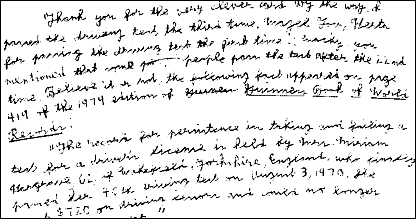 "Thank you for the very clever card. By the way, I
passed the driving test the third time.
for passing the driving test the first time! you
mentioned that some people pass the test after the 22nd
time. Believe it or not, the following fact appeared on page
419 of the 1974 edition of Guinness Book of World
Records:
"The record for persistence in taking and failing a
test for a driver's license is held by Mrs. Miriam
Hargrave, 62, of Wakefield, Yorkshire, England, who finally
passed her 40th driving test on August 3, 1970. She
$720 on driving lessons and could no longer